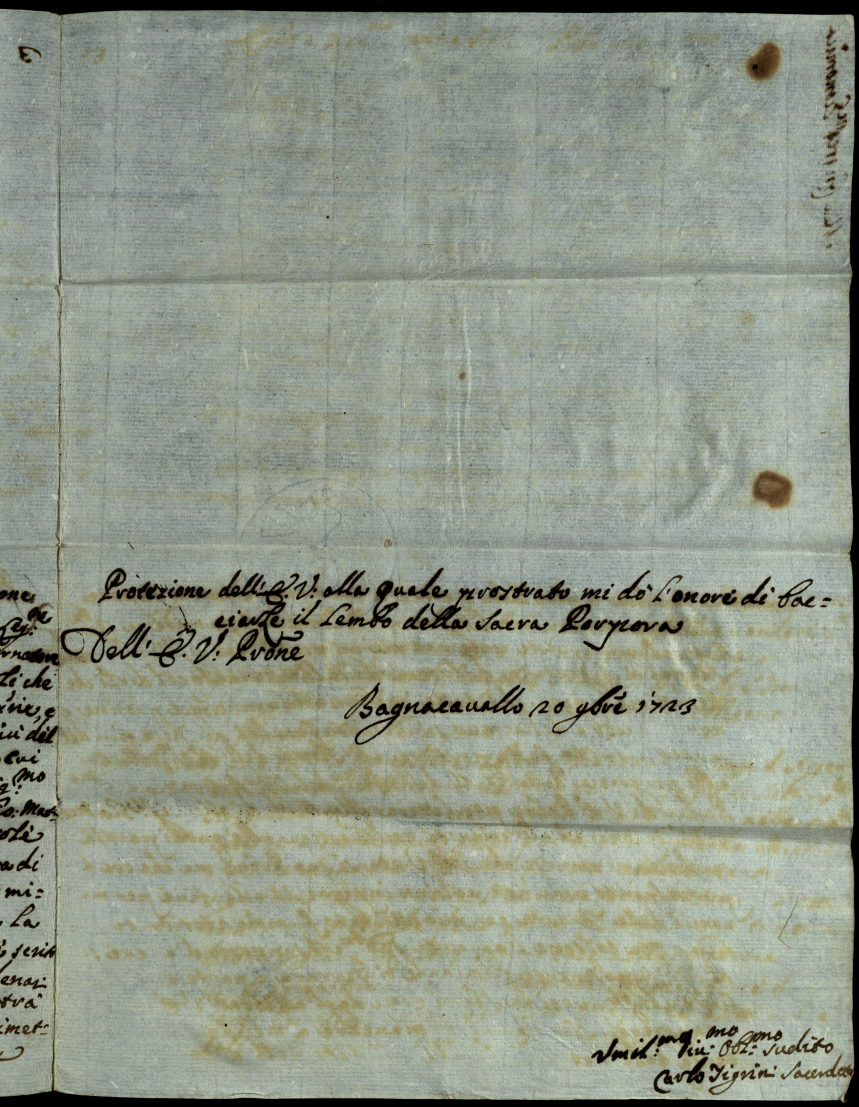 Protezione dell'E. V. alla quale prostrato mi dò l'onore di bac=
ciarle il Lembo della Sacra Porpora
Dell'E. V. Prone
Bagnacavallo 20 9bre 1723
Umil.mo Div.mo Obl.mo Sudito
Carlo Tigrini Sacerdote
one
li che
del
cui
mo
ra di
mi=
La
scrit
tra
imet=